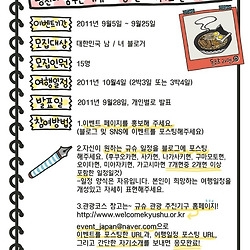 이벤트기간 2011년 9월5일 ~ 9월25일
모집대상 대한민국 남 / 녀 블로거
모집인원 15명
여행일정 2011년 10월4일 (2박3일 또는 3박4일)
발표일 2011년 9월28일, 개인별로 발표
참여방법 1.이벤트 페이지를 홍보해 주세요.
(블로그 및 SNS에 이벤트를 포스팅해주세요)
2.자신이 원하는 규슈 일정을 블로그에 포스팅
해주세요. (후쿠오카현, 사가현, 나가사키현, 구마모토현,
오이타현, 미야자키현, 가고시마현 7개현중 2개현 이상
포함한 일정일것)
-일정 양식은 자유입니다. 본인이 희망하는 여행일정을
개성있고 자세히 표현해주세요.
3.관광코스 참고는~ 규슈 관광 추진기구 홈페이지!
http://www.welcomekyushu.or.kr
event_japan@naver.com으로
이벤트를 포스팅한 URL과, 여행일정 포스팅 URL,
그리고 간단한 자기소개를 보내면 응모완료!